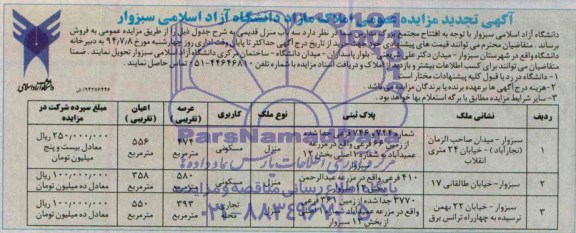 آگهی تجدید مزایده عمومی املاک مازاد دانشگاه آزاد اسلامی سبزوار
دانشگاه آزاد اسلامی سبزوار با توجه به افتتاح مجتمع بزرگ مدارس سما در نظر دارد سه باب منزل قدیمی به شرح جدول ذیل را از طریق مزایده عمومی به فروش
برساند. متقاضیان محترم می توانند قیمت های پیشنهادی خود جهت خرید از تاریخ درج آگهی حداکثر تا پایان وقت اداری روز چهارشنبه مورخ ۹۴/۷/۸ به دبیرخانه
دانشگاه واقع در شهرستان سبزوار - میدان دکتر علی شریعتی - بلوار پاسداران - میدان دانشگاه - ساختمان مرکزی دانشگاه آزاد اسلامی سبزوار تحویل نمایند. ضمنا
متقاضیان می توانند برای کسب اطلاعات بیشتر و بازدید از املاک و دریافت اسناد مزایده با شماره تلفن ۰۵۱-۴۴۶۴۶۸۱۰ تماس حاصل نمایند.
۱- دانشگاه در رد یا قبول کلیه پیشنهادات مختار است.
۲- هزینه درج آگهی ها بر عهده برنده یا برندگان مزایده می باشد.
۳- سایر شرایط مزایده مطابق با برگه استعلام بها خواهد بود.
ردیف نشانی ملک پلاک ثبتی نوع ملک کاربری عرصه (تقریبی) اعیان (تقریبی) مبلغ سپرده شرکت در مزایده
۱ سبزوار - میدان صاحب الزمان (نجارآباد) - خیابان ۲۴ متری انقلاب شماره ۷۲۴ و ۶۷۴۶ فرعی جدا شده از زمین ۶۶ فرعی واقع در مزرعه عمیدآباد به شماره ۱ اصلی بخش ۱۲ سبزوار منزل مسکونی ۴۷۴ مترمربع ۵۵۶ مترمربع ۲۵۰/۰۰۰/۰۰۰ ریال معادل بیست و پنج میلیون تومان
۲ سبزوار - خیابان طالقانی ۱۷ ۴۱۰ فرعی واقع در مزرعه عبدالرحمن منزل مسکونی ۵۸۰ مترمربع ۳۵۸ مترمربع ۱۰۰/۰۰۰/۰۰۰ ریال معادل ده میلیون تومان
۳ سبزوار - خیابان ۲۲ بهمن نرسیده به چهارراه ترانس برق ۳۷۷۰ جدا شده از زمین ۳۶۱ فرعی واقع در مزرعه بخش ۱۲ سبزوار منزل تجاری ۳۹۳ مترمربع ۵۵۰ مترمربع ۱۰۰/۰۰۰/۰۰۰ ریال معادل ده میلیون تومان
ParsNamad
۰۲۱-۸۸۳۴۹۶۷۰-۵